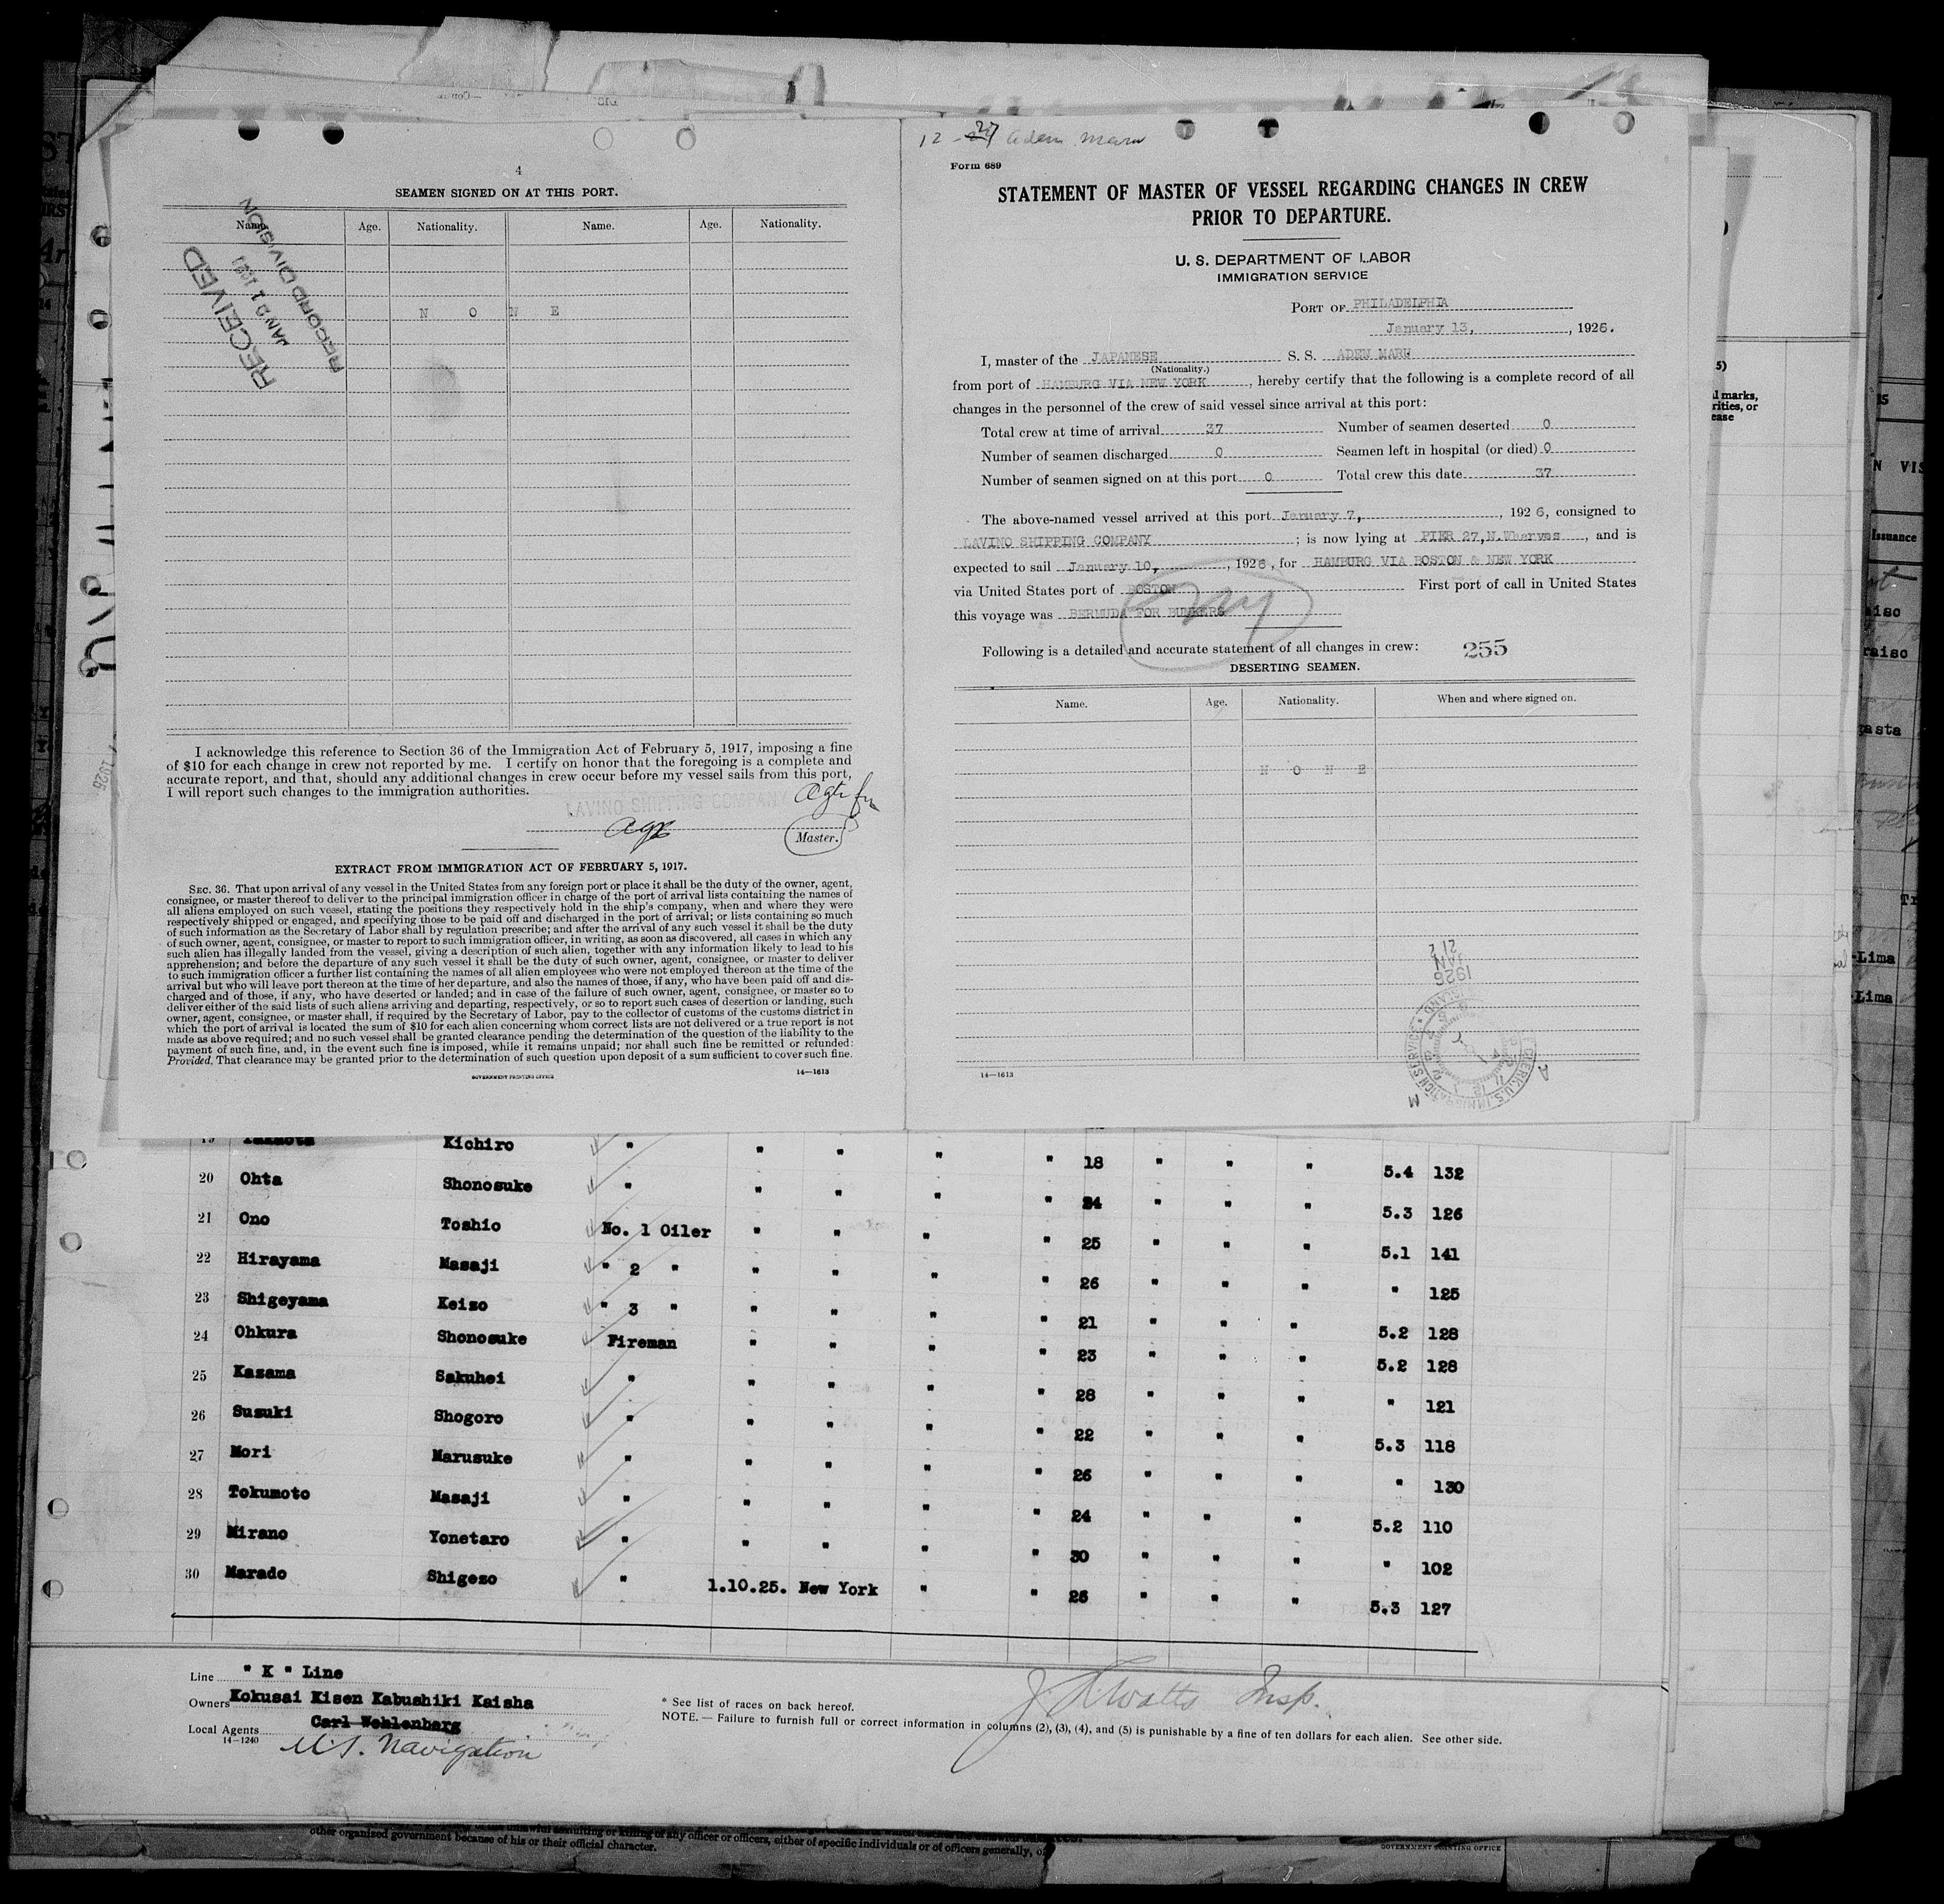 4
SEAMEN SIGNED ON AT THIS PORT.
Name. Age. Nationality. Name. Age. Nationality.
RECEIVED
JAN 21 1926
RECORD DIVISION
N O N E
I acknowledge this reference to Section 36 of the Immigration Act of February 5, 1917, imposing a fine
of $10 for each change in crew not reported by me. I certify on honor that the foregoing is a complete and
accurate report, and that, should any additional changes in crew occur before my vessel sails from this port,
I will report such changes to the immigration authorities.
LAVINO SHIPPING COMPANY
Agts for
Master.
EXTRACT FROM IMMIGRATION ACT OF FEBRUARY 5, 1917.
SEC. 36. That upon arrival of any vessel in the United States from any foreign port or place it shall be the duty of the owner, agent,
consignee, or master thereof to deliver to the principal immigration officer in charge of the port of arrival lists containing the names of
all aliens employed on such vessel, stating the positions they respectively hold in the ship's company, when and where they were
respectively shipped or engaged, and specifying those to be paid off and discharged in the port of arrival; or lists containing so much
of such information as the Secretary of Labor shall by regulation prescribe; and after the arrival of any such vessel it shall be the duty
of such owner, agent, consignee, or master to report to such immigration officer, in writing, as soon as discovered, all cases in which any
such alien has illegally landed from the vessel, giving a description of such alien, together with any information likely to lead to his
apprehension; and before the departure of any such vessel it shall be the duty of such owner, agent, consignee, or master to deliver
to such immigration officer a further list containing the names of all alien employees who were not employed thereon at the time of the
arrival but who will leave port thereon at the time of her departure, and also the names of those, if any, who have been paid off and dis-
charged and of those, if any, who have deserted or landed; and in case of the failure of such owner, agent, consignee, or master so to
deliver either of the said lists of such aliens arriving and departing, respectively, or so to report such cases of desertion or landing, such
owner, agent, consignee, or master shall, if required by the Secretary of Labor, pay to the collector of customs of the customs district in
which the port of arrival is located the sum of $10 for each alien concerning whom correct lists are not delivered or a true report is not
made as above required; and no such vessel shall be granted clearance pending the determination of the question of the liability to the
payment of such fine, and, in the event such fine is imposed, while it remains unpaid; nor shall such fine be remitted or refunded:
Provided, That clearance may be granted prior to the determination of such question upon deposit of a sum sufficient to cover such fine.
GOVERNMENT PRINTING OFFICE 14—1613
12-27 Aden Maru
Form 689
STATEMENT OF MASTER OF VESSEL REGARDING CHANGES IN CREW
PRIOR TO DEPARTURE.
U. S. DEPARTMENT OF LABOR
IMMIGRATION SERVICE
PORT OF PHILADELPHIA
January 13, , 1926.
I, master of the JAPANESE S. S. ADEN MARU
(Nationality.)
from port of HAMBURG VIA NEW YORK , hereby certify that the following is a complete record of all
changes in the personnel of the crew of said vessel since arrival at this port:
Total crew at time of arrival 37 Number of seamen deserted 0
Number of seamen discharged 0 Seamen left in hospital (or died) 0
Number of seamen signed on at this port 0 Total crew this date 37
The above-named vessel arrived at this port January 7, , 1926, consigned to
LAVINO SHIPPING COMPANY ; is now lying at PIER 27, N. Wharves , and is
expected to sail January 10, , 1926, for HAMBURG VIA BOSTON & NEW YORK
via United States port of BOSTON First port of call in United States
this voyage was BERMUDA FOR BUNKERS
Following is a detailed and accurate statement of all changes in crew: 255
DESERTING SEAMEN.
Name. Age. Nationality. When and where signed on.
N O N E
1926
JAN
14—1613
19 Kichiro " " " " " 18 " " " 5.4 132
20 Ohta Shonosuke " " " " " 24 " " " 5.3 126
21 Ono Toshio No. 1 Oiler " " " " 25 " " " 5.1 141
22 Hirayama Masaji " 2 " " " " " 26 " " " " 125
23 Shigeyama Keizo " 3 " " " " " 21 " " " 5.2 128
24 Ohkura Shonosuke Fireman " " " " 23 " " " 5.2 128
25 Kazama Sakuhei " " " " " 28 " " " " 121
26 Susuki Shogoro " " " " " 22 " " " 5.3 118
27 Mori Marusuke " " " " " 26 " " " " 130
28 Tokumoto Masaji " " " " " 24 " " " 5.2 110
29 Mirano Yonetaro " " " " " 30 " " " " 102
30 Marado Shigezo " 1.10.25. New York " " 25 " " " 5.3 127
Line " K " Line
Owners Kokusai Kisen Kabushiki Kaisha
Local Agents Carl Wohlenberg
14—1240
U.S. Navigation
* See list of races on back hereof.
NOTE.—Failure to furnish full or correct information in columns (2), (3), (4), and (5) is punishable by a fine of ten dollars for each alien. See other side.
Watts Insp.
other organized government because of his or their official character.
any officer or officers, either of specific individuals or of officers generally, of
GOVERNMENT PRINTING OFFICE
l marks,
rities, or
ease
Issuance
aiso
raiso
gasta
Lima
Lima